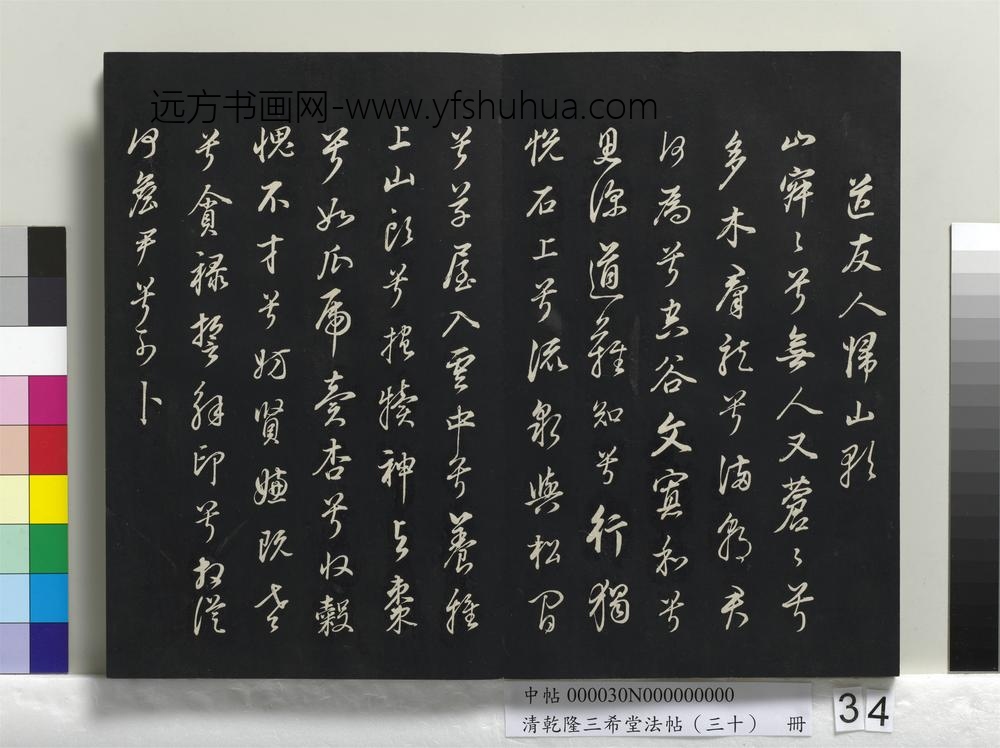 远方书画网-www.yfshuhua.com
送友人歸山歌
山寂〻兮無人又蒼〻兮
多木羣龍兮滿朝君
何為兮空谷文寡和兮
思深道難知兮行獨
悅石上兮流泉與松間
兮草屋入雲中兮養雞
上山頭兮抱犢神與棗
兮如瓜虎賣杏兮收穀
愧不才兮妨賢嫌既老
兮貪祿誓解印兮相從
何詹尹兮可卜
中帖 000030N000000000
清乾隆三希堂法帖（三十） 冊
34